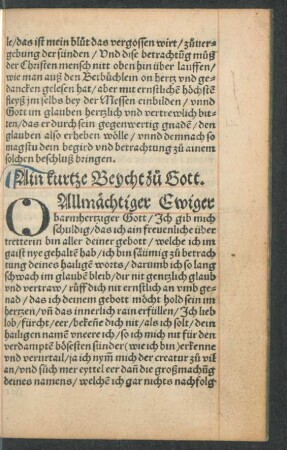 le/das ist mein blůt das vergossen wirt/ zů ver-
gebung der sünden/ Vnd dise betrachtũg můß
der Christen mensch nitt oben hin über lauffen/
wie man auß den Betbüchlein on hertz vnd ge-
dancken gelesen hat/ aber mit ernstlichē höchstē
fleyß jm selbs bey der Messen einbilden/ vnnd
Gott im glauben hertzlich vnd vertrewlich bit-
ten/das er durch sein gegenwertig gnadē/ den
glauben also erheben wölle/ vnnd dennach so
magstu dein begird vnd betrachtung zů ainem
solchen beschluß bringen.
Ain kurtze Beycht zů Gott.
O Allmächtiger Ewiger
barmhertziger Gott/ Ich gib mich
schuldig/das ich ain freuenliche über
tretterin bin aller deiner gebott/ welche ich im
gaist nye gehaltē hab/ ich bin säumig zů betrach
tung deines hailigē worts/ darumb ich so lang
schwach im glaubē bleib/ dir nit gentzlich glaub
vnd vertraw/ rüff dich nit ernstlich an vmb ge-
nad/ das ich deinem gebott möcht hold sein im
hertzen/ vñ das innerlich rain erfüllen/ Ich lieb
lob/fürcht/eer/bekeñe dich nit/als ich solt/dein
hailigen namē vneere ich/so ich mich nit für den
verdamptē bösesten sünder (wie ich bin) erkenne
vnd verurtail/ja ich nym̃ mich der creatur zů vil
an/vnd sůch mer eyttel eer dañ die großmachũg
deines namens/ welchē ich gar nichts nachfolg